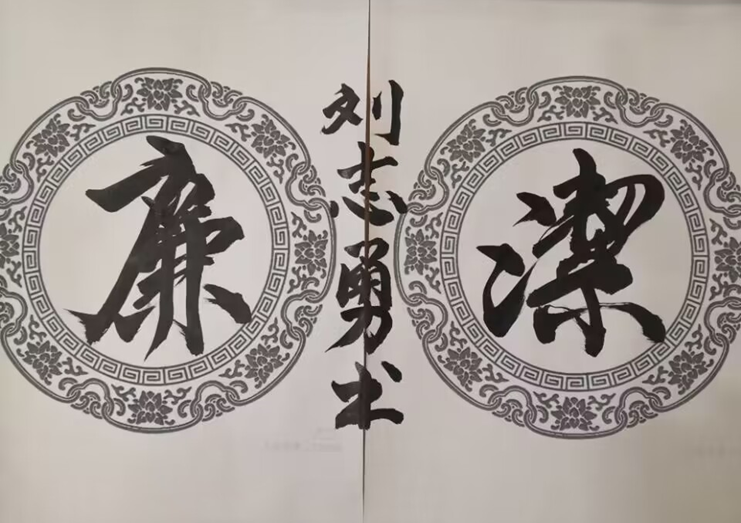 廉
刘志勇书
潔